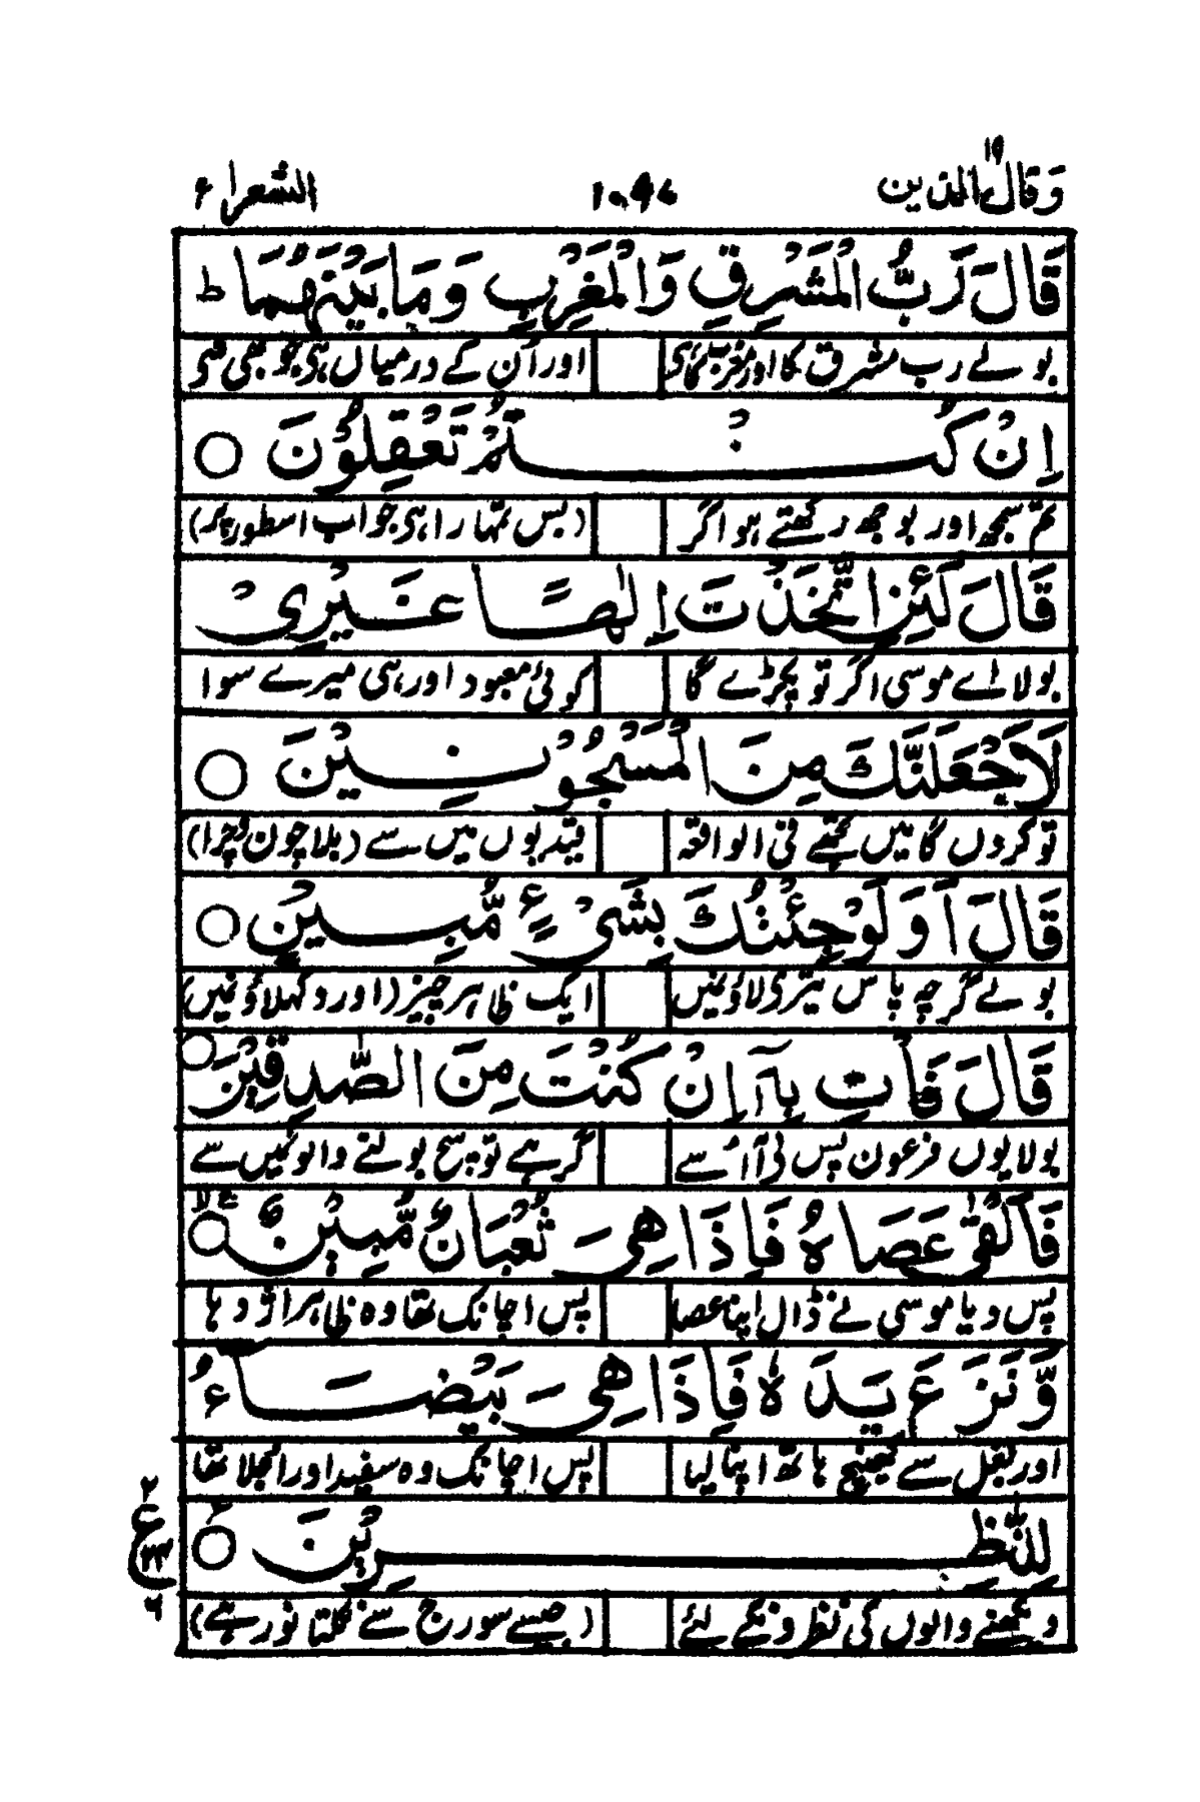 وَقَالَ الَّذِين ١٩ ١٠٩٧ الشعراء ٢٦
قَالَ رَبُّ الْمَشْرِقِ وَالْمَغْرِبِ وَمَا بَيْنَهُمَا ط
بولے رب مشرق کا اور مغرب اور اُن کے درمیاں ہی جو بھی شی
اِنْ كُنْتُمْ تَعْقِلُوْنَ ○
تم سمجھ اور بوجھ رکھتے ہو اگر (بس تمہارا ہی جواب اسطور پر)
قَالَ لَئِنِ اتَّخَذْتَ اِلٰهًا غَيْرِيْ
بولا اے موسی اگر تو پکڑے گا کوئی معبود اور ہی میرے سوا
لَاَجْعَلَنَّكَ مِنَ الْمَسْجُوْنِيْنَ ○
تو کردں گا میں تجھے فی الواقعہ قیدیوں میں سے (بلا چون و چرا)
قَالَ اَوَلَوْ جِئْتُكَ بِشَيْءٍ مُّبِيْنٍ ○
بولے گرچہ پاس تیری لاؤنمیں ایک ظاہر چیز (اور دکھلاؤنمیں)
قَالَ فَاْتِ بِهٖٓ اِنْ كُنْتَ مِنَ الصّٰدِقِيْنَ ○
بولا یوں فرعون پس لی آ اُسے گر ہے تو سچ بولنے والونمیں سے
فَاَلْقٰى عَصَاهُ فَاِذَا هِيَ ثُعْبَانٌ مُّبِيْنٌ ○
پس دیا موسی نے ڈال اپنا عصا پس اچانک تھا وہ ظاہر اژدہا
وَّنَزَعَ يَدَهٗ فَاِذَا هِيَ بَيْضَآءُ
اور بغل سے کھینچ ہاتھ اپنا لیا پس اچانک وہ سفید اور اجلا تھا
لِلنّٰظِرِيْنَ ○
دیکھنے والوں کی نظرونکے لئے (جیسے سورج سے نکلتا نور ہے)
ع